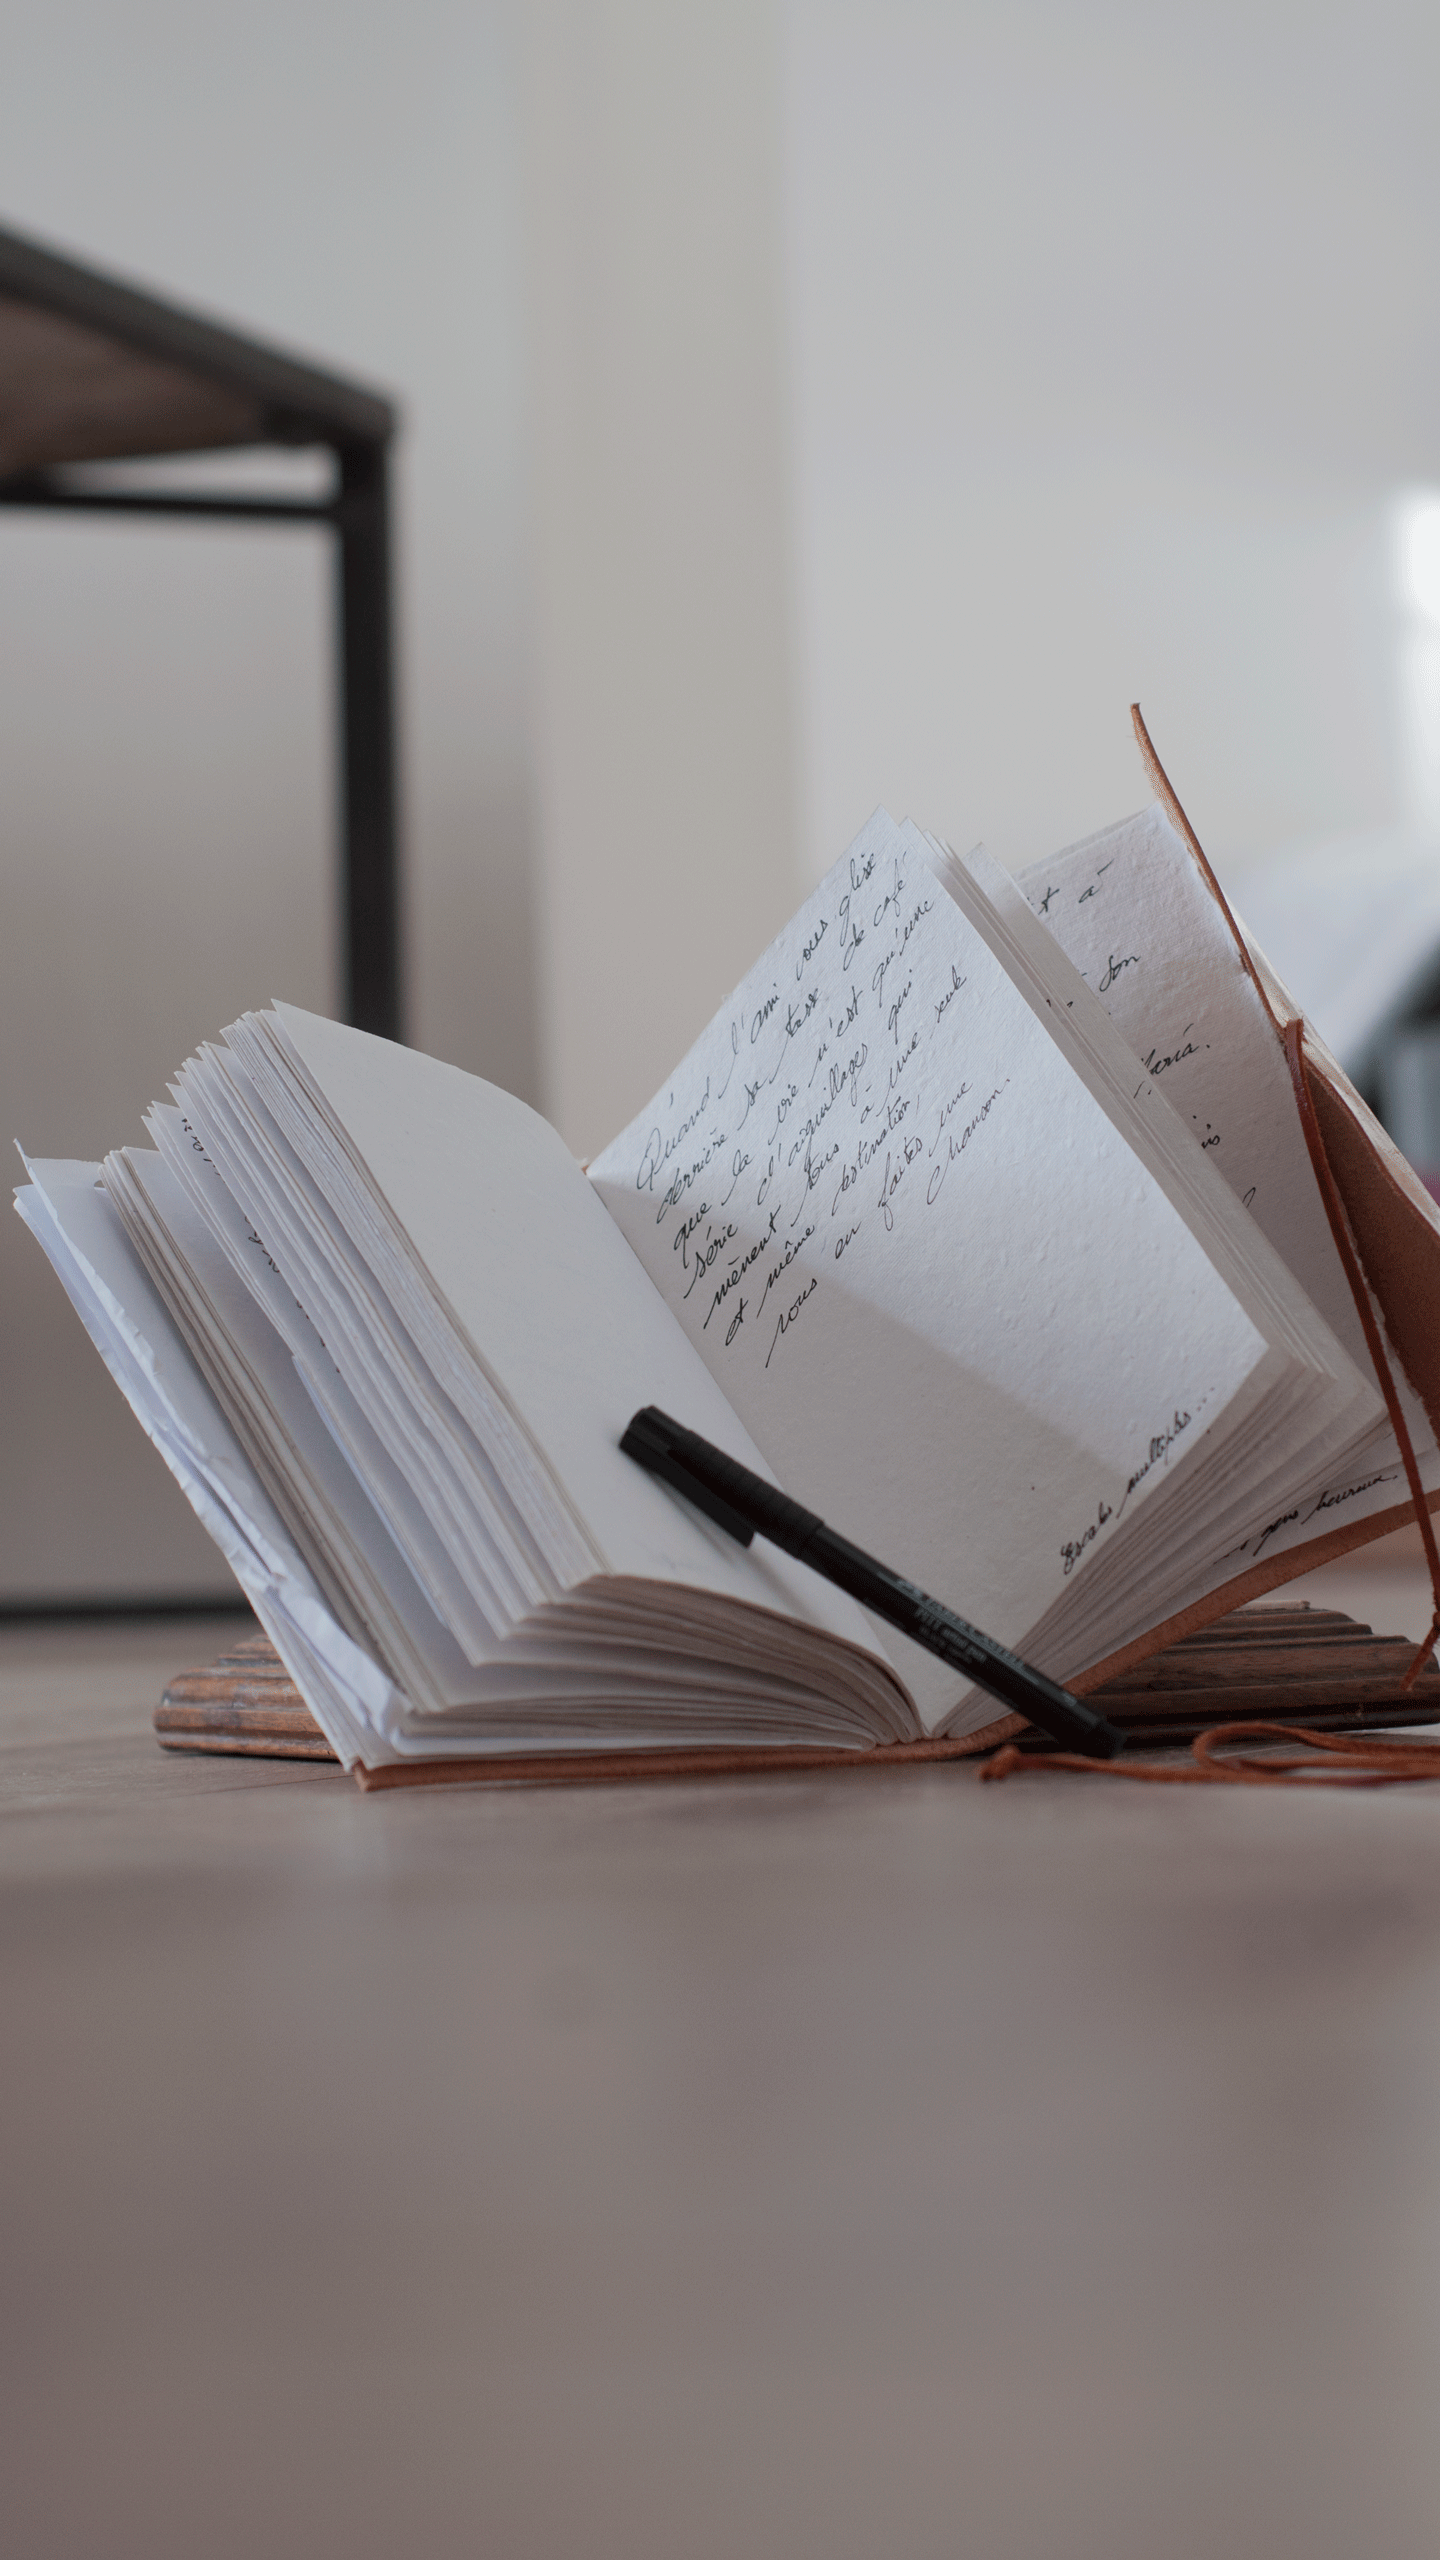 Quand l'ami vous glisse
derrière sa tasse de café
que la vie n'est qu'une
série d'aiguillages qui
mènent tous à une seule
et même destination,
vous en faites une
chanson.
Escales multiples...
t à
son
is
gens heureux